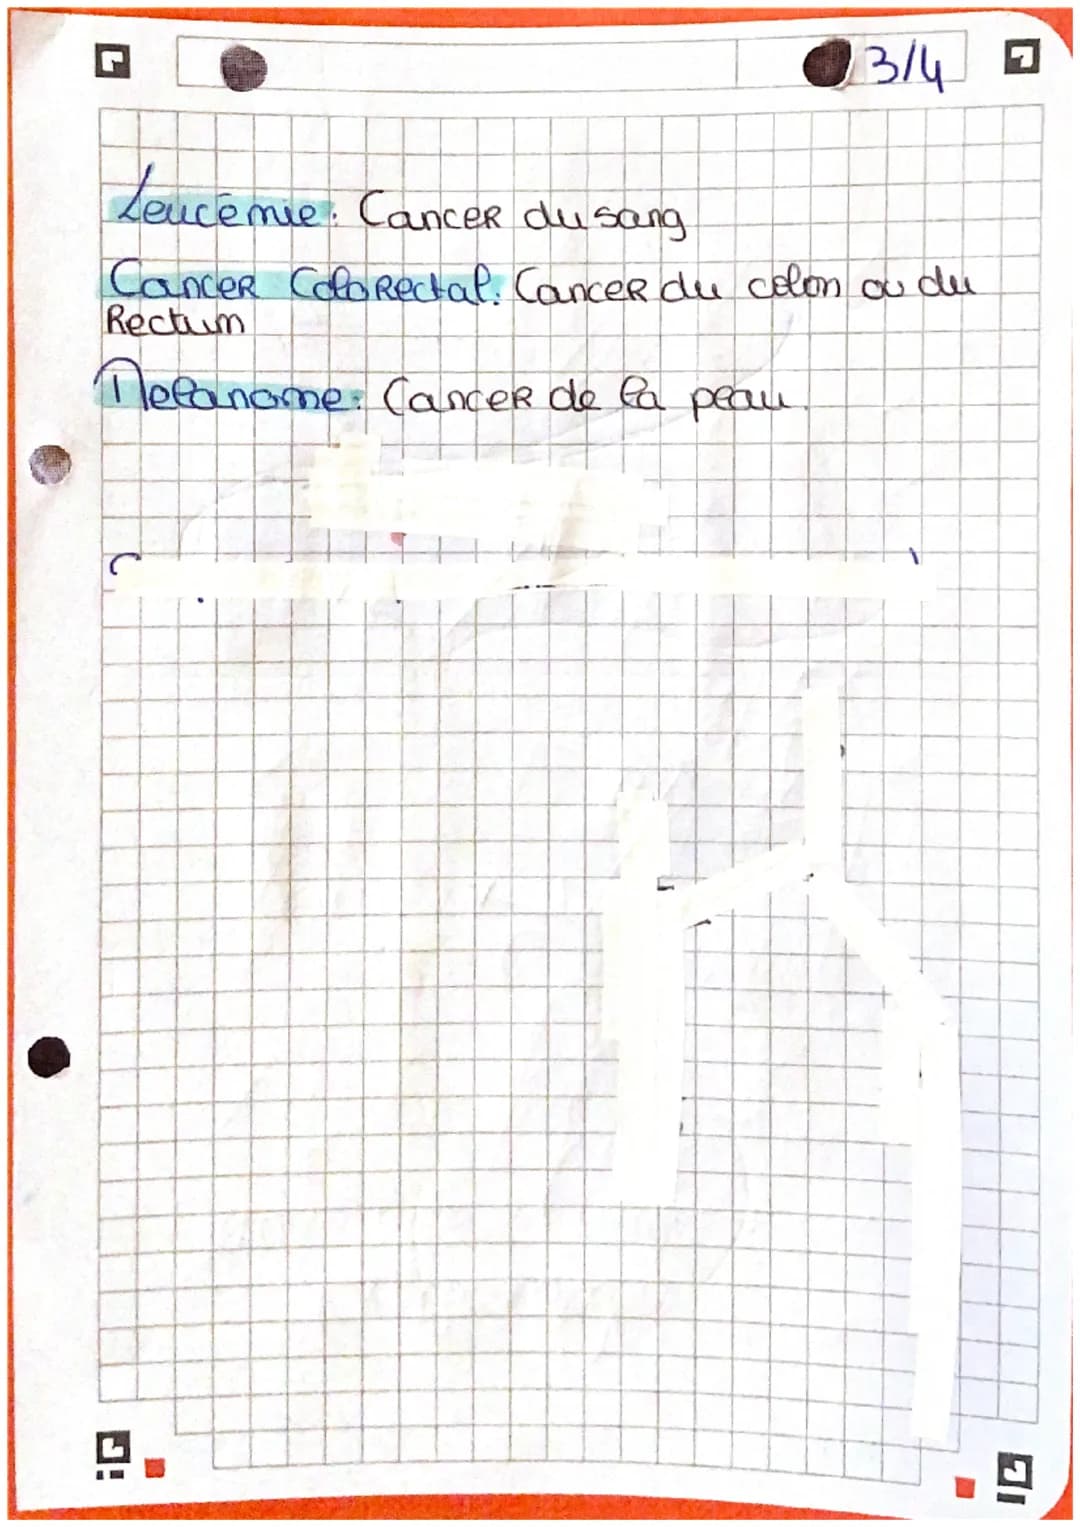 3/4
Leucémie: Cancer du sang
Cancer Colorectal: Cancer du colon ou du
Rectum
Melanome: Cancer de la peau.